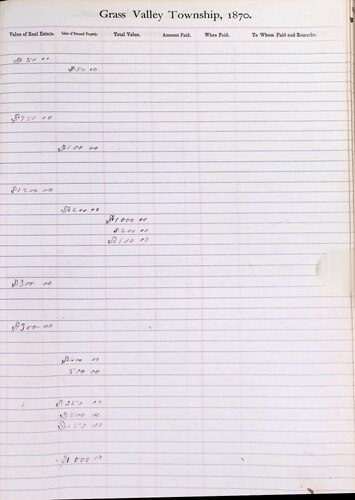 Grass Valley Township, 1870.
Value of Real Estate. Value of Personal Property. Total Value. Amount Paid. When Paid. To Whom Paid and Remarks.
$50 00
$50 00
$750 00
$100 00
$1200 00
$200 00
$1000 00
$200 00
$100 00
$300 00
$300 00
$400 00
500 00
$350 00
$500 00
$150 00
$1000 0